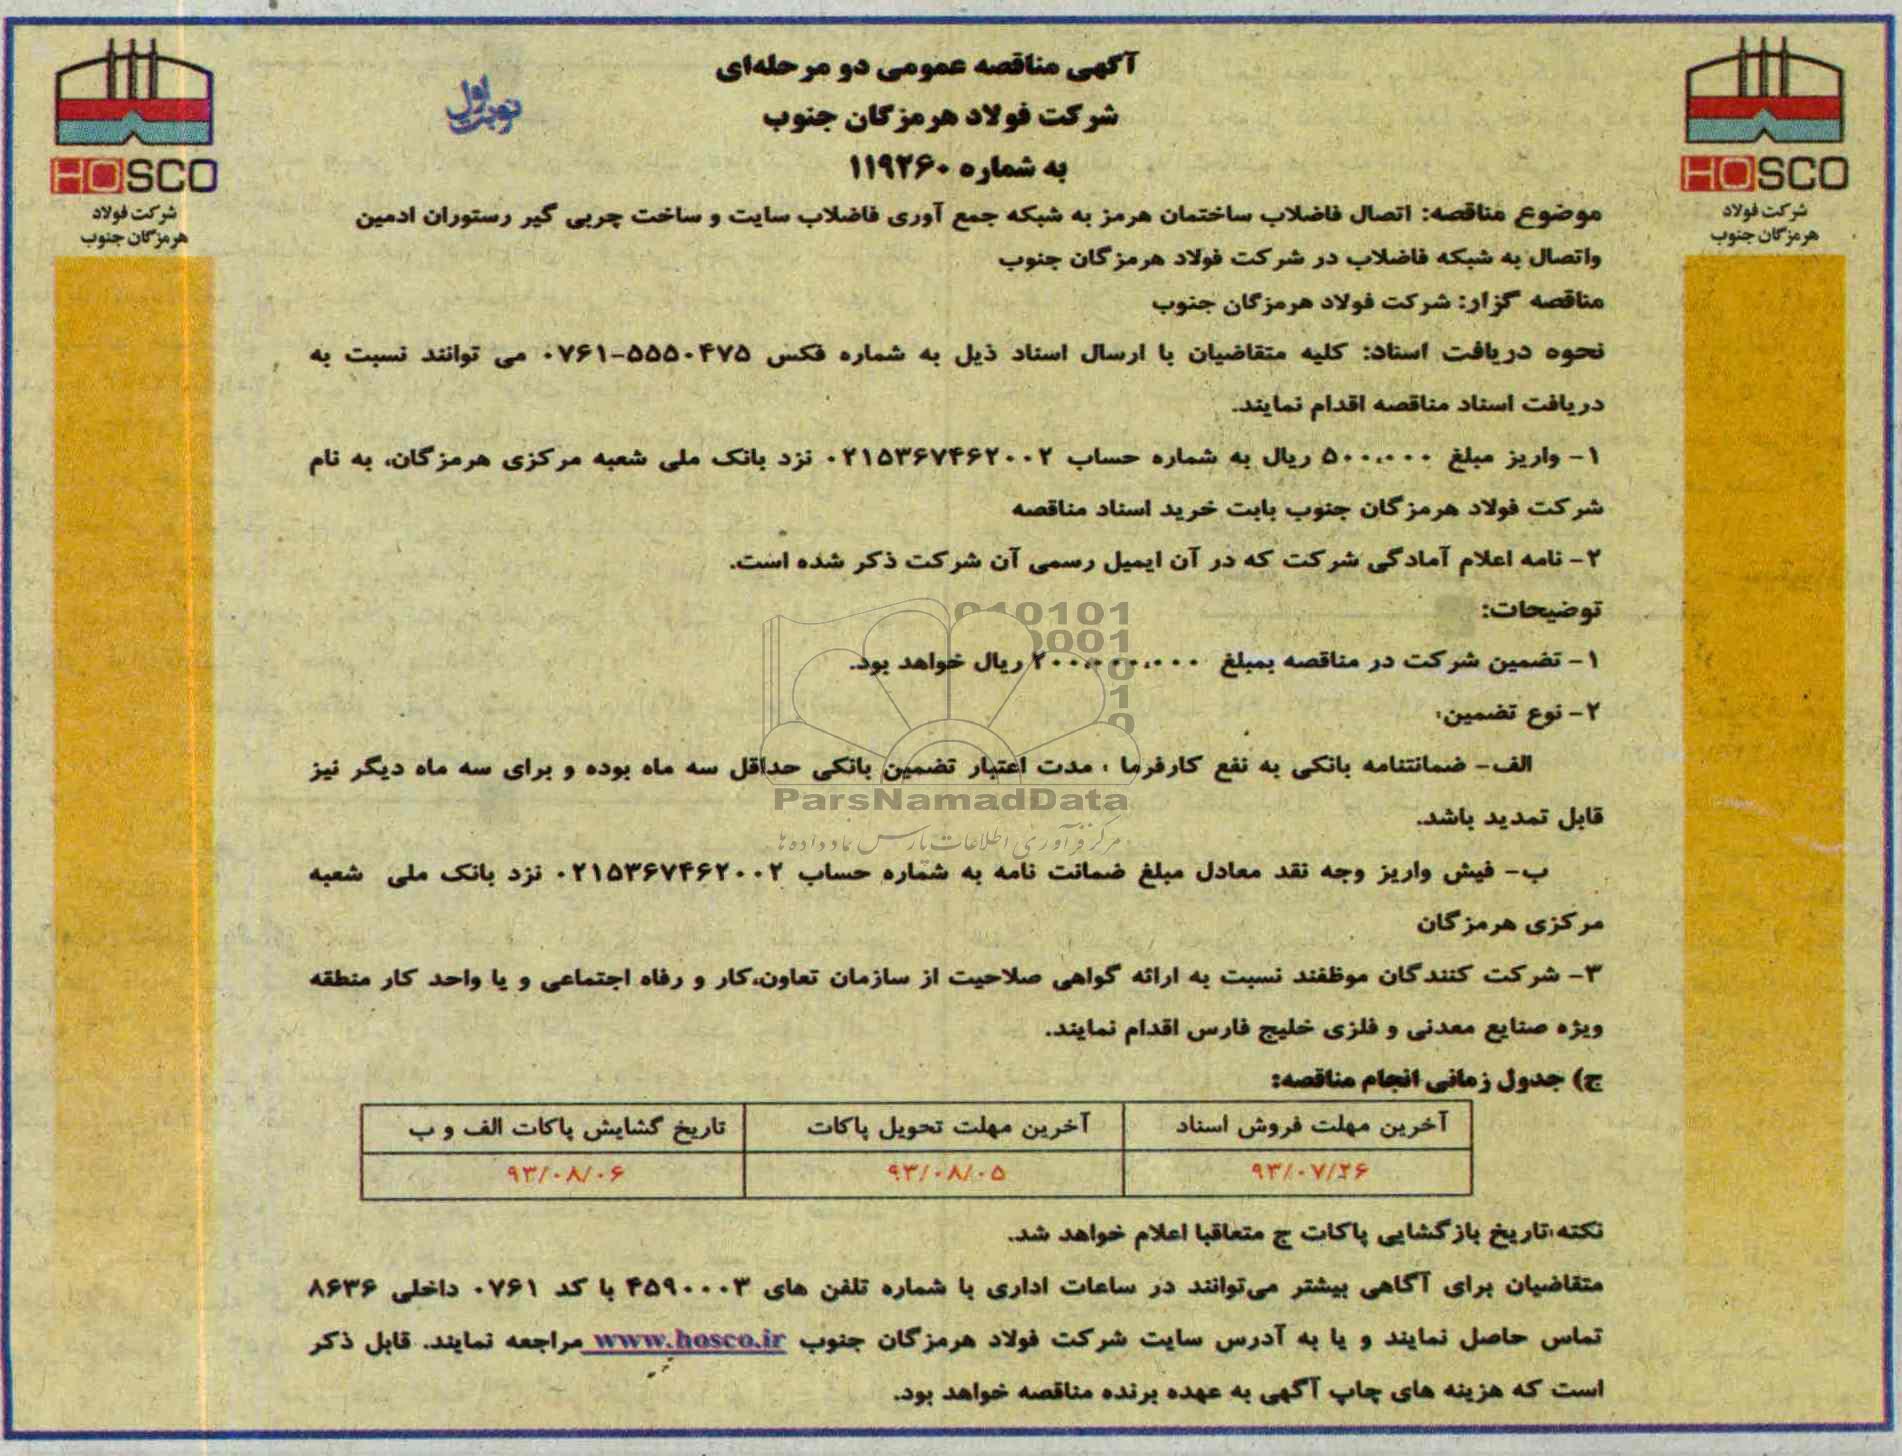 آگهی مناقصه عمومی دو مرحله‌ای
نوبت اول
شرکت فولاد هرمزگان جنوب
به شماره ۱۱۹۲۶۰
HOSCO
شرکت فولاد
هرمزگان جنوب
HOSCO
شرکت فولاد
هرمزگان جنوب
موضوع مناقصه: اتصال فاضلاب ساختمان هرمز به شبکه جمع آوری فاضلاب سایت و ساخت چربی گیر رستوران ادمین
واتصال به شبکه فاضلاب در شرکت فولاد هرمزگان جنوب
مناقصه گزار: شرکت فولاد هرمزگان جنوب
نحوه دریافت اسناد: کلیه متقاضیان با ارسال اسناد ذیل به شماره فکس ۵۵۵۰۴۷۵-۰۷۶۱ می توانند نسبت به
دریافت اسناد مناقصه اقدام نمایند.
۱- واریز مبلغ ۵۰۰،۰۰۰ ریال به شماره حساب ۰۲۱۵۳۶۷۴۶۲۰۰۲ نزد بانک ملی شعبه مرکزی هرمزگان، به نام
شرکت فولاد هرمزگان جنوب بابت خرید اسناد مناقصه
۲- نامه اعلام آمادگی شرکت که در آن ایمیل رسمی آن شرکت ذکر شده است.
توضیحات:
۱- تضمین شرکت در مناقصه بمبلغ ۲۰۰،۰۰۰،۰۰۰ ریال خواهد بود.
۲- نوع تضمین:
الف- ضمانتنامه بانکی به نفع کارفرما ، مدت اعتبار تضمین بانکی حداقل سه ماه بوده و برای سه ماه دیگر نیز
قابل تمدید باشد.
ParsNamadData
مرکز فرآوری اطلاعات پارس نماد داده ها
ب- فیش واریز وجه نقد معادل مبلغ ضمانت نامه به شماره حساب ۰۲۱۵۳۶۷۴۶۲۰۰۲ نزد بانک ملی شعبه
مرکزی هرمزگان
۳- شرکت کنندگان موظفند نسبت به ارائه گواهی صلاحیت از سازمان تعاون،کار و رفاه اجتماعی و یا واحد کار منطقه
ویژه صنایع معدنی و فلزی خلیج فارس اقدام نمایند.
ج) جدول زمانی انجام مناقصه:
آخرین مهلت فروش اسناد آخرین مهلت تحویل پاکات تاریخ گشایش پاکات الف و ب
۹۳/۰۷/۲۶ ۹۳/۰۸/۰۵ ۹۳/۰۸/۰۶
نکته:تاریخ بازگشایی پاکات ج متعاقبا اعلام خواهد شد.
متقاضیان برای آگاهی بیشتر می‌توانند در ساعات اداری با شماره تلفن های ۴۵۹۰۰۰۳ با کد ۰۷۶۱ داخلی ۸۶۳۶
تماس حاصل نمایند و یا به آدرس سایت شرکت فولاد هرمزگان جنوب www.hosco.ir مراجعه نمایند. قابل ذکر
است که هزینه های چاپ آگهی به عهده برنده مناقصه خواهد بود.